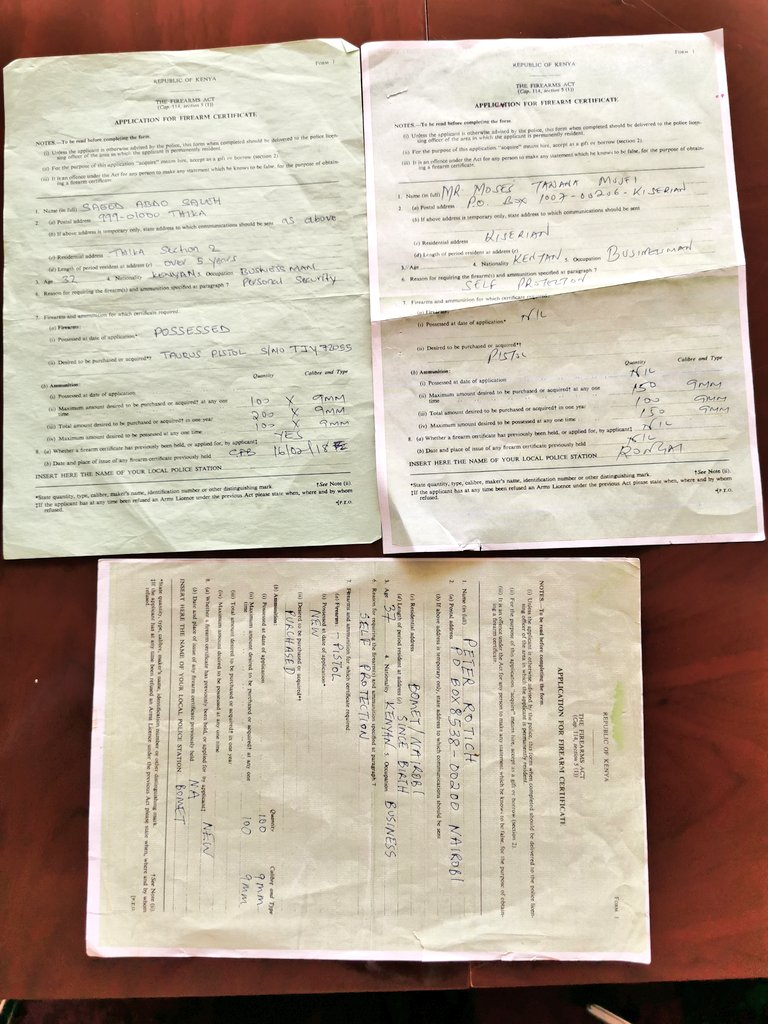 FORM 1
REPUBLIC OF KENYA
THE FIREARMS ACT
(Cap. 114, section 5 (1))
APPLICATION FOR FIREARM CERTIFICATE
NOTES.—To be read before completing the form.
(i) Unless the applicant is otherwise advised by the police, this form when completed should be delivered to the police licen-
sing officer of the area in which the applicant is permanently resident.
(ii) For the purpose of this application "acquire" means hire, accept as a gift or borrow (section 2).
(iii) It is an offence under the Act for any person to make any statement which he knows to be false, for the purpose of obtain-
ing a firearm certificate.
1. Name (in full) SAEED ABAD SALEH
2. (a) Postal address 999-01000 THIKA
(b) If above address is temporary only, state address to which communications should be sent as above
(c) Residential address THIKA Section 2
(d) Length of period resident at address (c) over 5 years
3. Age 32 4. Nationality KENYANS Occupation BUSINESS MAN
6. Reason for requiring the firearm(s) and ammunition specified at paragraph 7 Personal Security
7. Firearms and ammunition for which certificate required
(a) Firearms:
(i) Possessed at date of application* POSSESSED
(ii) Desired to be purchased or acquired*† TAURUS PISTOL S/NO TJY72055
Quantity Calibre and Type
(b) Ammunition:
(i) Possessed at date of application
(ii) Maximum amount desired to be purchased or acquired† at any one 100 X 9MM
time
200 X 9MM
(iii) Total amount desired to be purchased or acquired† in one year
100 X 9MM
(iv) Maximum amount desired to be possessed at any one time
8. (a) Whether a firearm certificate has previously been held, or applied for, by applicant‡ YES
(b) Date and place of issue of any firearm certificate previously held 16/02/18
INSERT HERE THE NAME OF YOUR LOCAL POLICE STATION
*State quantity, type, calibre, maker's name, identification number or other distinguishing mark. †See Note (ii).
‡If the applicant has at any time been refused an Arms Licence under the previous Act please state when, where and by whom
refused. [P.T.O.
FORM 1
REPUBLIC OF KENYA
THE FIREARMS ACT
(Cap. 114, section 5 (1))
APPLICATION FOR FIREARM CERTIFICATE
NOTES.—To be read before completing the form.
(i) Unless the applicant is otherwise advised by the police, this form when completed should be delivered to the police licen-
sing officer of the area in which the applicant is permanently resident.
(ii) For the purpose of this application "acquire" means hire, accept as a gift or borrow (section 2).
(iii) It is an offence under the Act for any person to make any statement which he knows to be false, for the purpose of obtain-
ing a firearm certificate.
1. Name (in full) MR MOSES
2. (a) Postal address P.O. BOX 1007-00206-KISERIAN
(b) If above address is temporary only, state address to which communications should be sent
(c) Residential address KISERIAN
(d) Length of period resident at address (c)
3. Age 4. Nationality KENYAN 5. Occupation BUSINESSMAN
6. Reason for requiring the firearm(s) and ammunition specified at paragraph 7
SELF PROTECTION
7. Firearms and ammunition for which certificate required
(a) Firearms:
(i) Possessed at date of application* NIL
(ii) Desired to be purchased or acquired*†
PISTOL
Quantity Calibre and Type
(b) Ammunition:
(i) Possessed at date of application NIL
(ii) Maximum amount desired to be purchased or acquired† at any one 150 9MM
time
100 9MM
(iii) Total amount desired to be purchased or acquired† in one year
150 9MM
(iv) Maximum amount desired to be possessed at any one time
8. (a) Whether a firearm certificate has previously been held, or applied for, by applicant‡ NIL
(b) Date and place of issue of any firearm certificate previously held NIL
INSERT HERE THE NAME OF YOUR LOCAL POLICE STATION RONGAI
*State quantity, type, calibre, maker's name, identification number or other distinguishing mark. †See Note (ii).
‡If the applicant has at any time been refused an Arms Licence under the previous Act please state when, where and by whom
refused. [P.T.O.
FORM 1
REPUBLIC OF KENYA
THE FIREARMS ACT
(Cap. 114, section 5 (1))
APPLICATION FOR FIREARM CERTIFICATE
NOTES.—To be read before completing the form.
(i) Unless the applicant is otherwise advised by the police, this form when completed should be delivered to the police licen-
sing officer of the area in which the applicant is permanently resident.
(ii) For the purpose of this application "acquire" means hire, accept as a gift or borrow (section 2).
(iii) It is an offence under the Act for any person to make any statement which he knows to be false, for the purpose of obtain-
ing a firearm certificate.
1. Name (in full) PETER ROTICH
2. (a) Postal address PO BOX 8538-00200 NAIROBI
(b) If above address is temporary only, state address to which communications should be sent
(c) Residential address BOMET/NAIROBI
(d) Length of period resident at address (c) SINCE BIRTH
3. Age 37 4. Nationality KENYAN 5. Occupation BUSINESS
6. Reason for requiring the firearm(s) and ammunition specified at paragraph 7
SELF PROTECTION
7. Firearms and ammunition for which certificate required
(a) Firearms: PISTOL
(i) Possessed at date of application*
NEW
(ii) Desired to be purchased or acquired*†
PURCHASED
Quantity Calibre and Type
(b) Ammunition:
(i) Possessed at date of application 100 9mm
(ii) Maximum amount desired to be purchased or acquired† at any one 100 9mm
time
(iii) Total amount desired to be purchased or acquired† in one year
(iv) Maximum amount desired to be possessed at any one time
8. (a) Whether a firearm certificate has previously been held, or applied for, by applicant‡ NEW
(b) Date and place of issue of any firearm certificate previously held NA
INSERT HERE THE NAME OF YOUR LOCAL POLICE STATION BOMET
*State quantity, type, calibre, maker's name, identification number or other distinguishing mark. †See Note (ii).
‡If the applicant has at any time been refused an Arms Licence under the previous Act please state when, where and by whom
refused. [P.T.O.